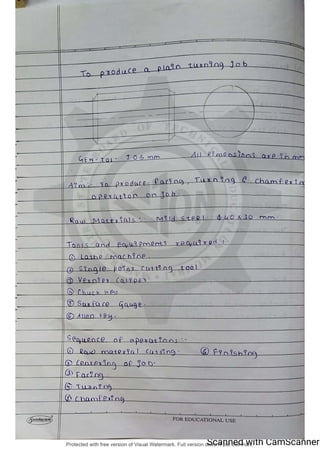 To produce a plain turning Job
Gen. Tol :- ± 0.5 mm All Dimensions are in mm
Aim :- To produce Facing, Turning & chamfering
operation on Job.
Raw Materials :- Mild steel φ 40 x 30 mm
Tools and Equipments required :
① Lathe machine
② Single point cutting tool
③ Vernier caliper
④ Chuck key
⑤ Surface Gauge.
⑥ Allen key.
Sequence of operations :-
① Raw material cutting. ⑥ Finishing
② Centering of Job.
③ Facing
④ Turning
⑤ Chamfering
Sundaram FOR EDUCATIONAL USE
Protected with free version of Visual Watermark. Full version
Scanned with CamScanner